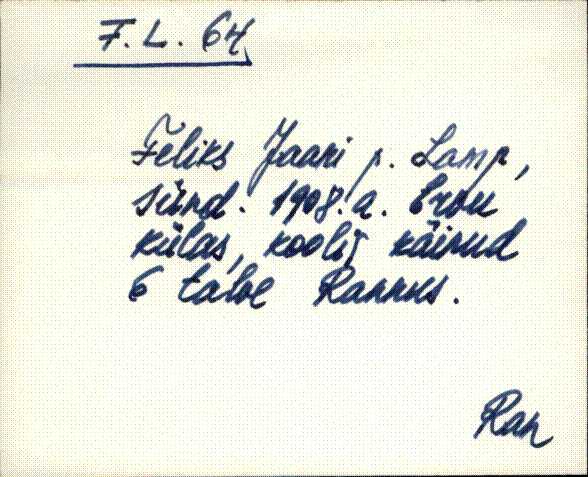 F. L. 64
Feliks Jaani p. Lamp,
sünd. 1908. a. Ervu
külas, koolis käinud
6 talve Rannus.
Ran